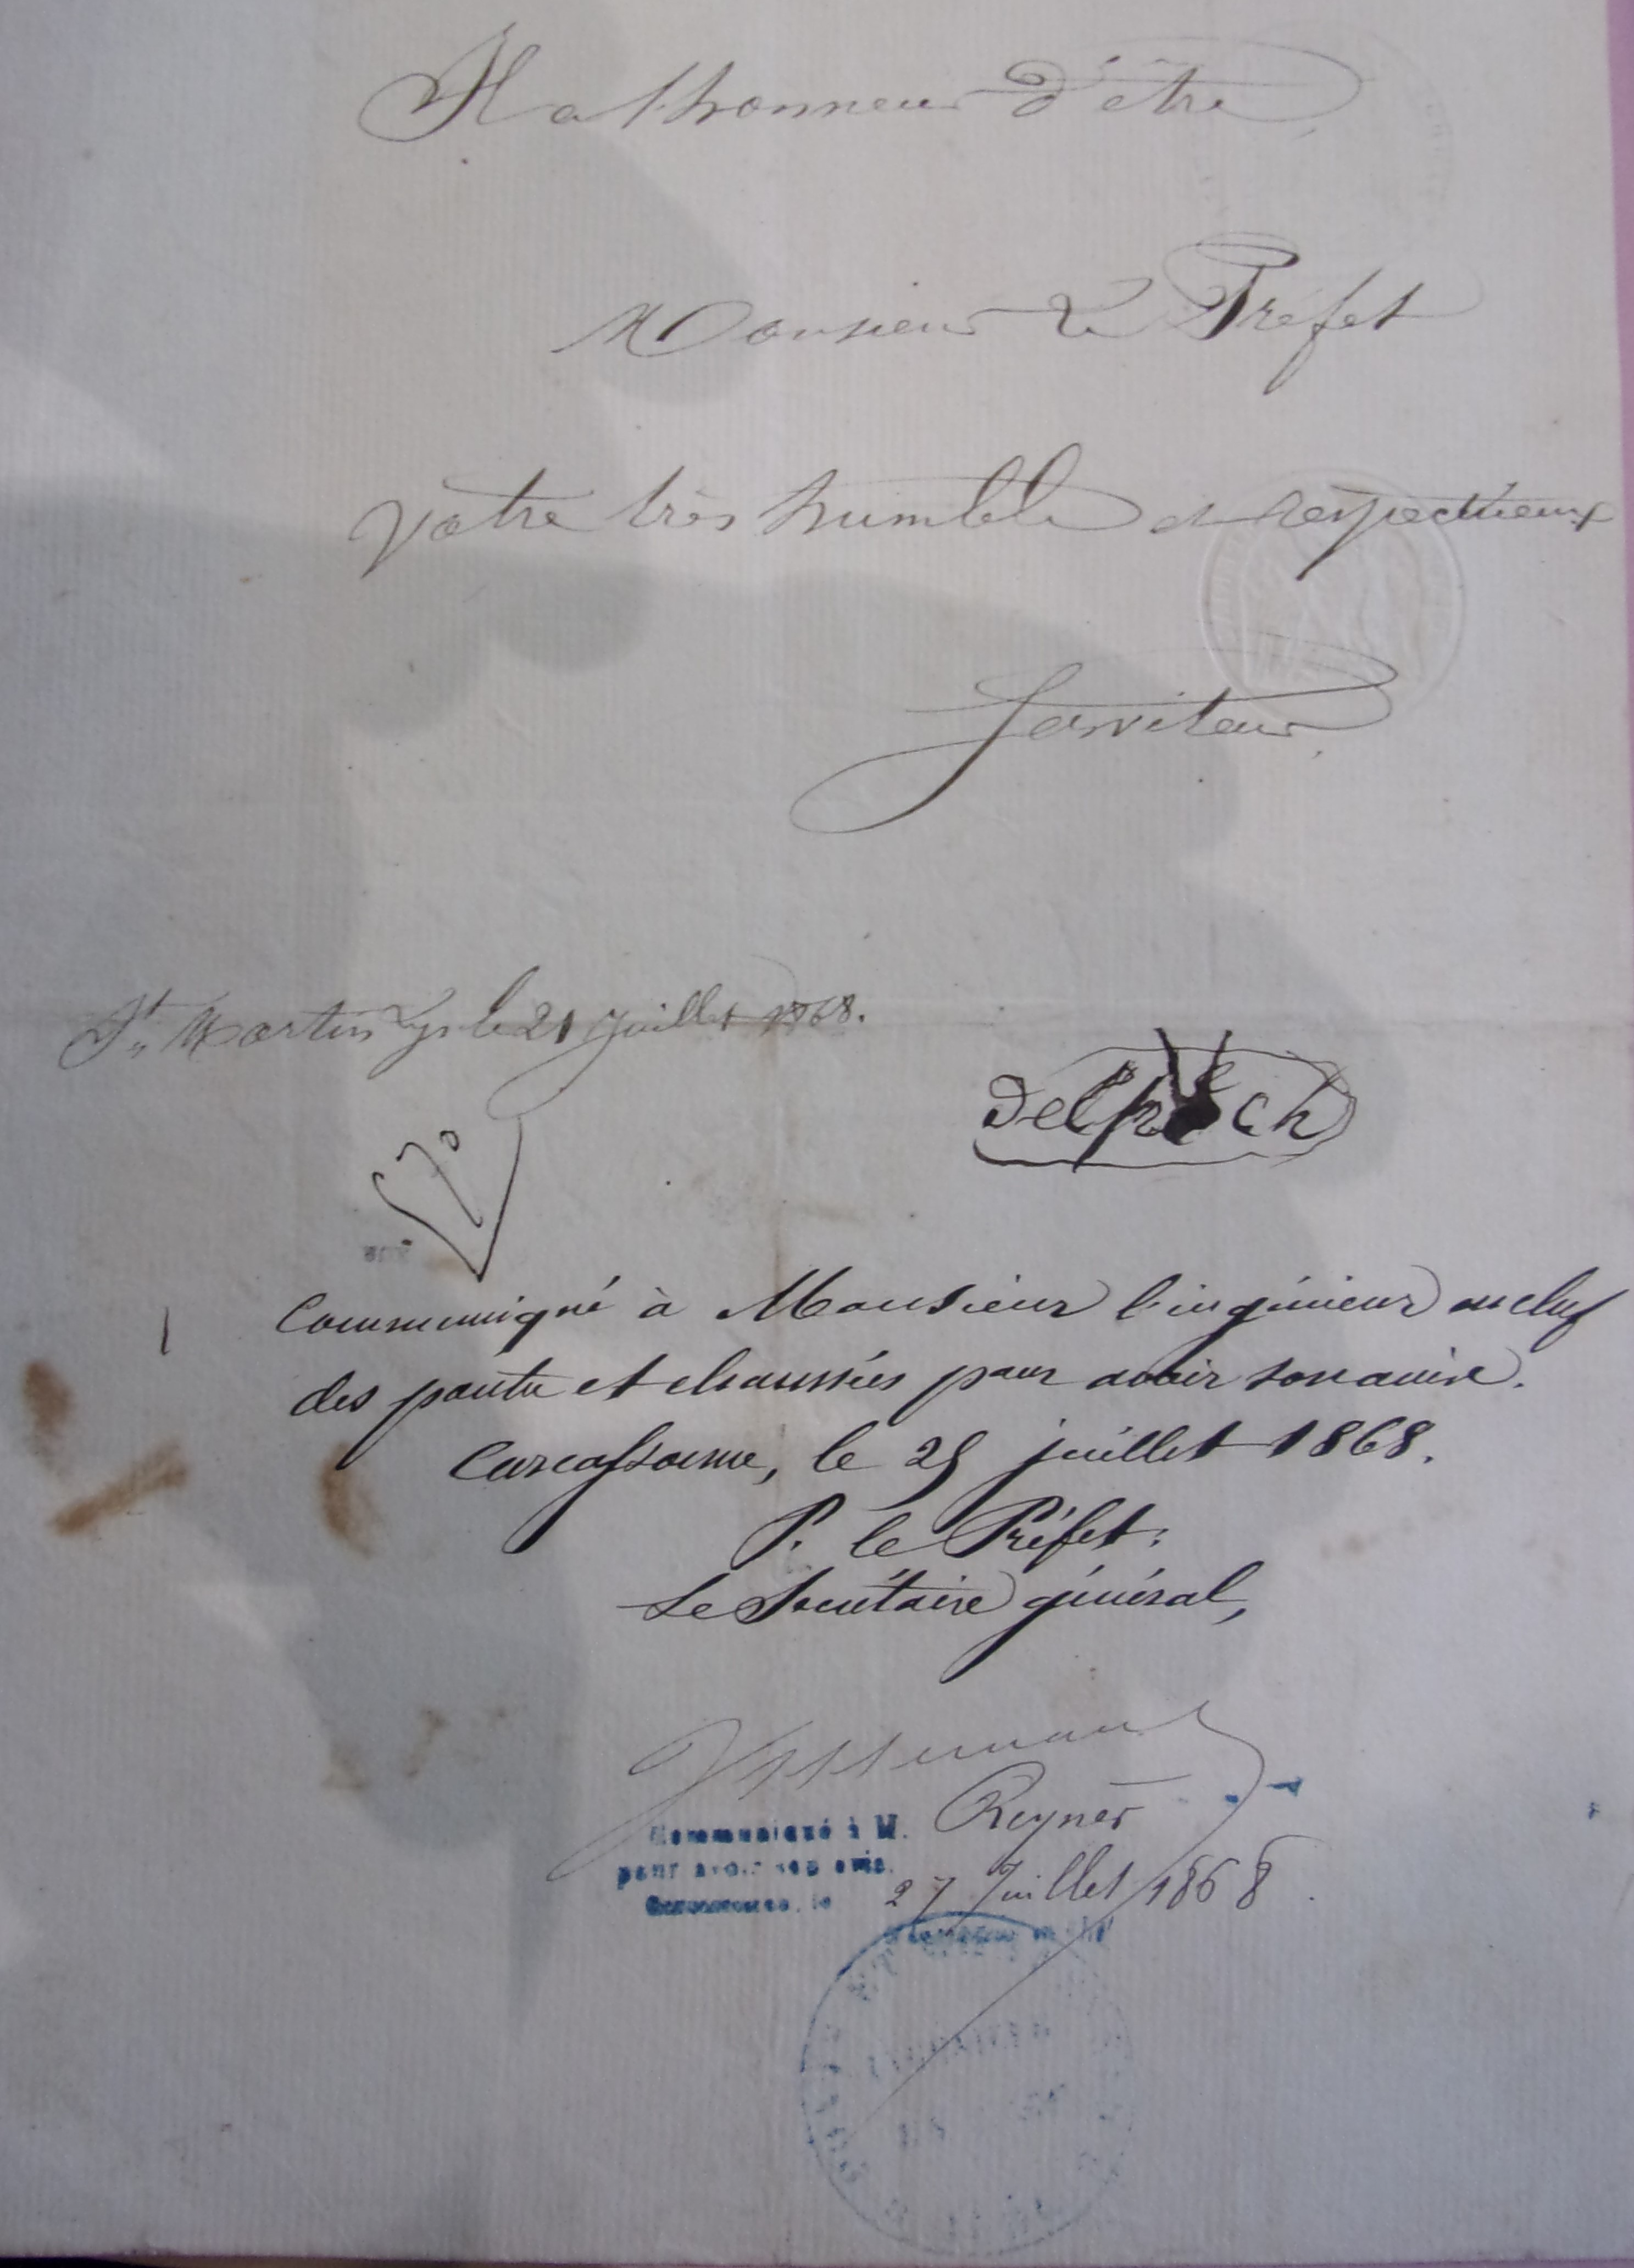 Il a l'honneur d'être
Monsieur le Préfet
Votre très humble et respectueux
Serviteur
St Martin Lys le 21 Juillet 1868.
Delpech
Communiqué à Monsieur l'ingénieur en chef
des ponts et chaussées pour avoir son avis.
Carcassonne, le 25 juillet 1868.
P. le Préfet:
Le Secrétaire général,
Communiqué à M. Reyner
pour avoir son avis.
Carcassonne, le 27 Juillet 1868.